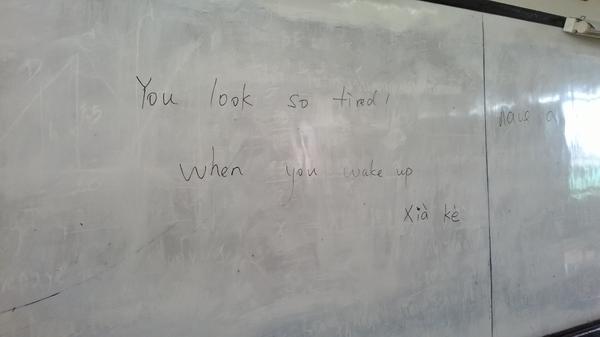 You look so tired!
when you wake up
xià kè
have a